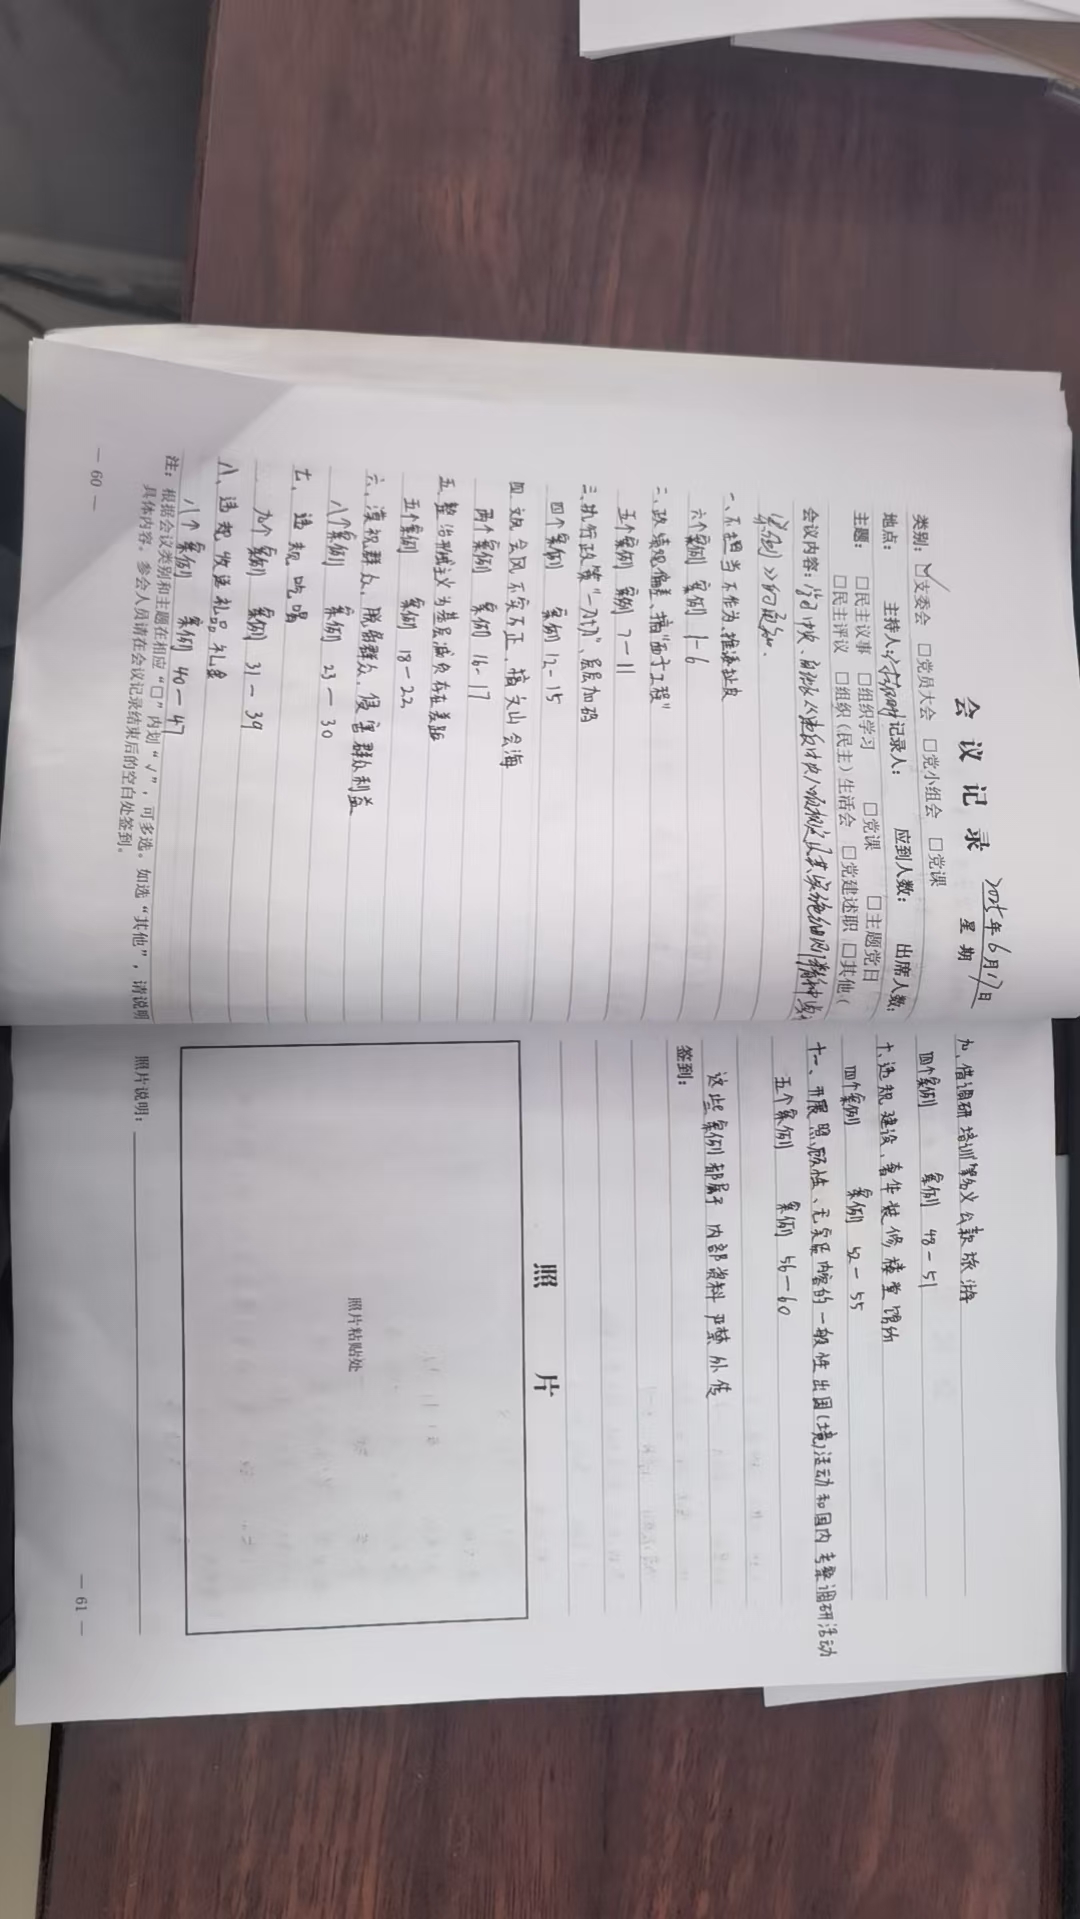 会议记录
2025年6月17日
星期
类别：☑支委会 □党员大会 □党小组会 □党课
地点： 主持人： 记录人： 应到人数： 出席人数：
主题： □民主议事 □组织学习 □党课 □主题党日
□民主评议 □组织（民主）生活会 □党建述职 □其他（
会议内容：学习中央
案例》的通知.
一、不担当不作为、推诿扯皮
六个案例 案例 1-6
二、政绩观偏差、搞“面子工程”
五个案例 案例 7-11
三、执行政策“一刀切”、层层加码
四个案例 案例 12-15
四、文风会风不实不正、搞文山会海
两个案例 案例 16-17
五、整治形式主义为基层减负存在差距
五个案例 案例 18-22
六、漠视群众、脱离群众、侵害群众利益
八个案例 案例 23-30
七、违规吃喝
九个案例 案例 31-39
八、违规收送礼品礼金
八个案例 案例 40-47
注：根据会议类别和主题在相应“□”内划“√”，可多选。如选“其他”，请说明
具体内容。参会人员请在会议记录结束后的空白处签到。
— 60 —
九、借调研培训等名义公款旅游
四个案例 案例 48-51
十、违规建设、奢华装修楼堂馆所
四个案例 案例 52-55
十一、开展照顾性、无实质内容的一般性出国(境)活动和国内考察调研活动
五个案例 案例 56-60
这些案例都属于内部资料 严禁外传
签到：
照片
照片粘贴处
照片说明：
— 61 —